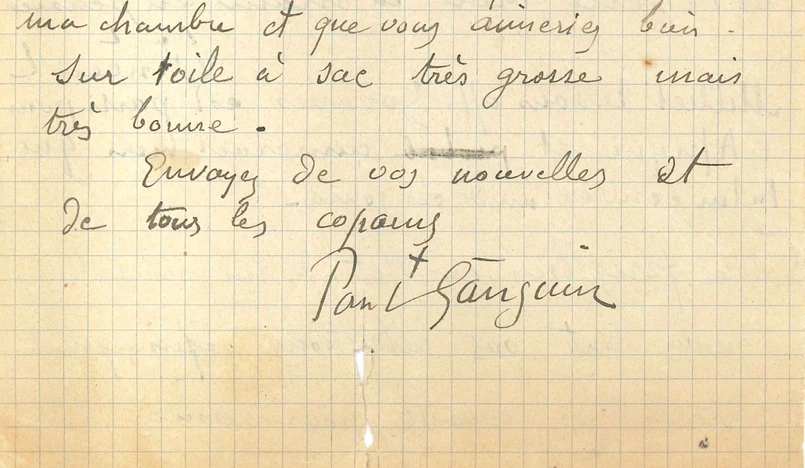 ma chambre et que vous aimeriez bien.
Sur toile à sac très grosse mais
très bonne.
Envoyez de vos nouvelles et
de tous les copains
Paul Gauguin